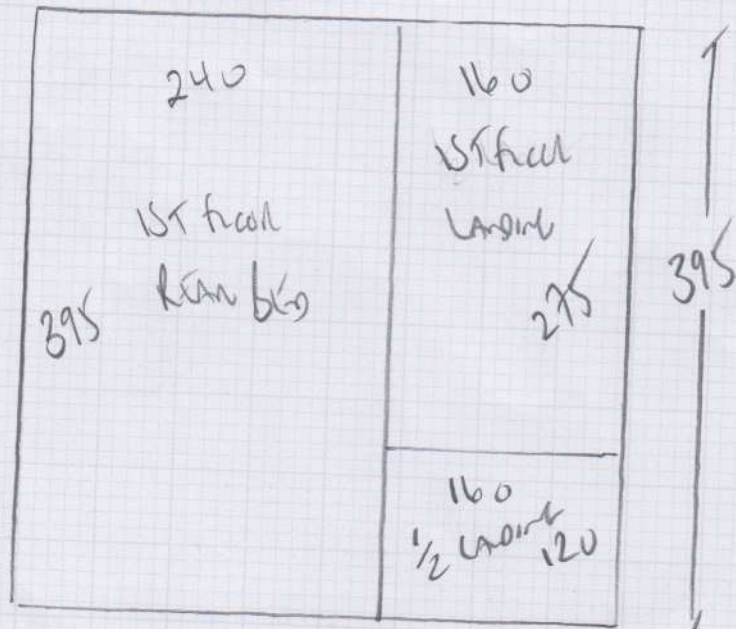 240
1ST floor
REAR bED
395
160
1ST floor
LANDING
275
160
1/2 LANDING
120
395